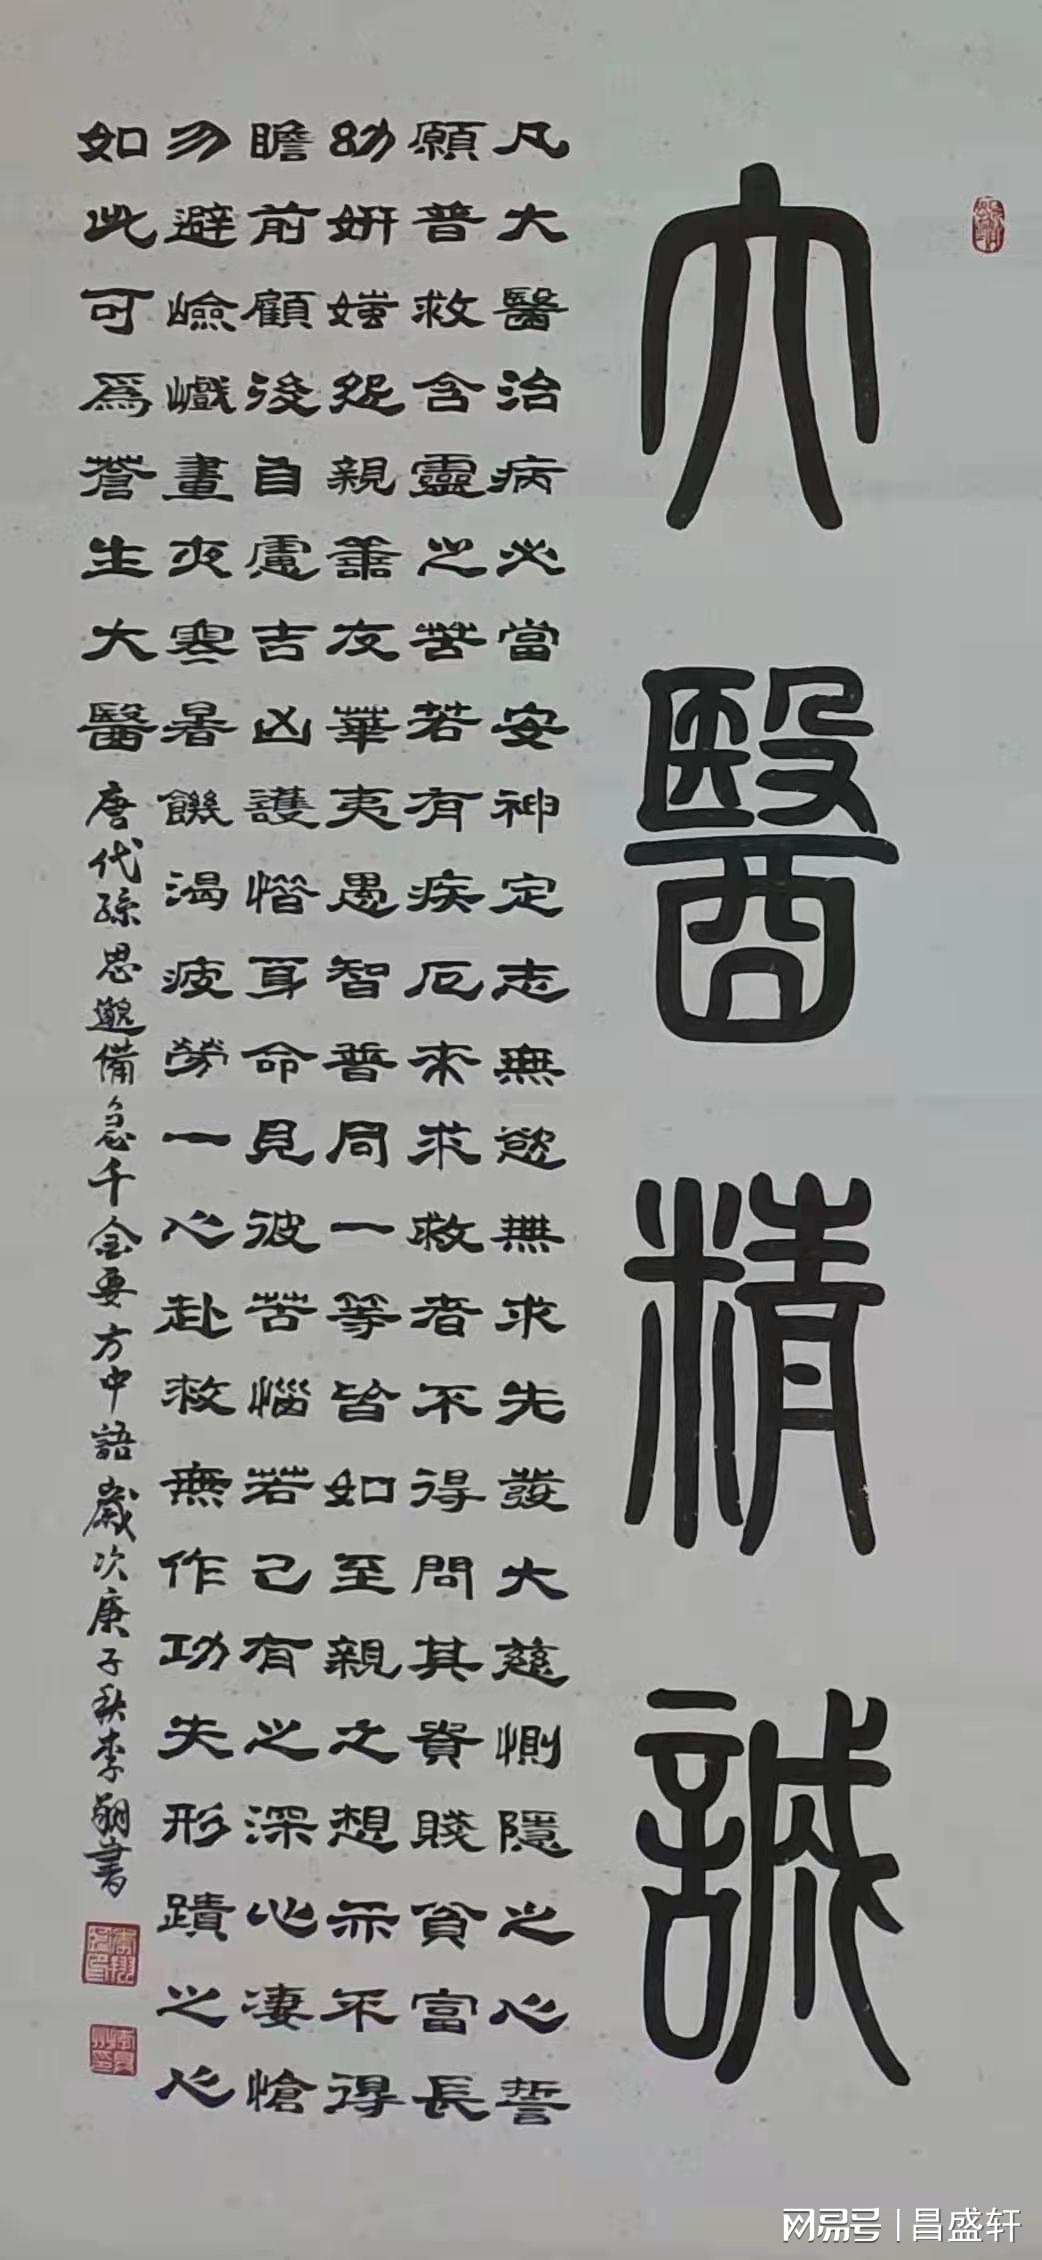 大醫精誠
凡大醫治病必當安神定志無慾無求先發大慈惻隱之心誓
願普救含靈之苦若有疾厄來求救者不得問其貴賤貧富長
幼妍媸怨親善友華夷愚智普同一等皆如至親之想亦不得
瞻前顧後自慮吉凶護惜身命見彼苦惱若己有之深心淒愴
勿避嶮巇晝夜寒暑饑渴疲勞一心赴救無作功夫形蹟之心
如此可爲蒼生大醫
唐代孫思邈備急千金要方中語歲次庚子秋李翔書
網易号 | 昌盛轩